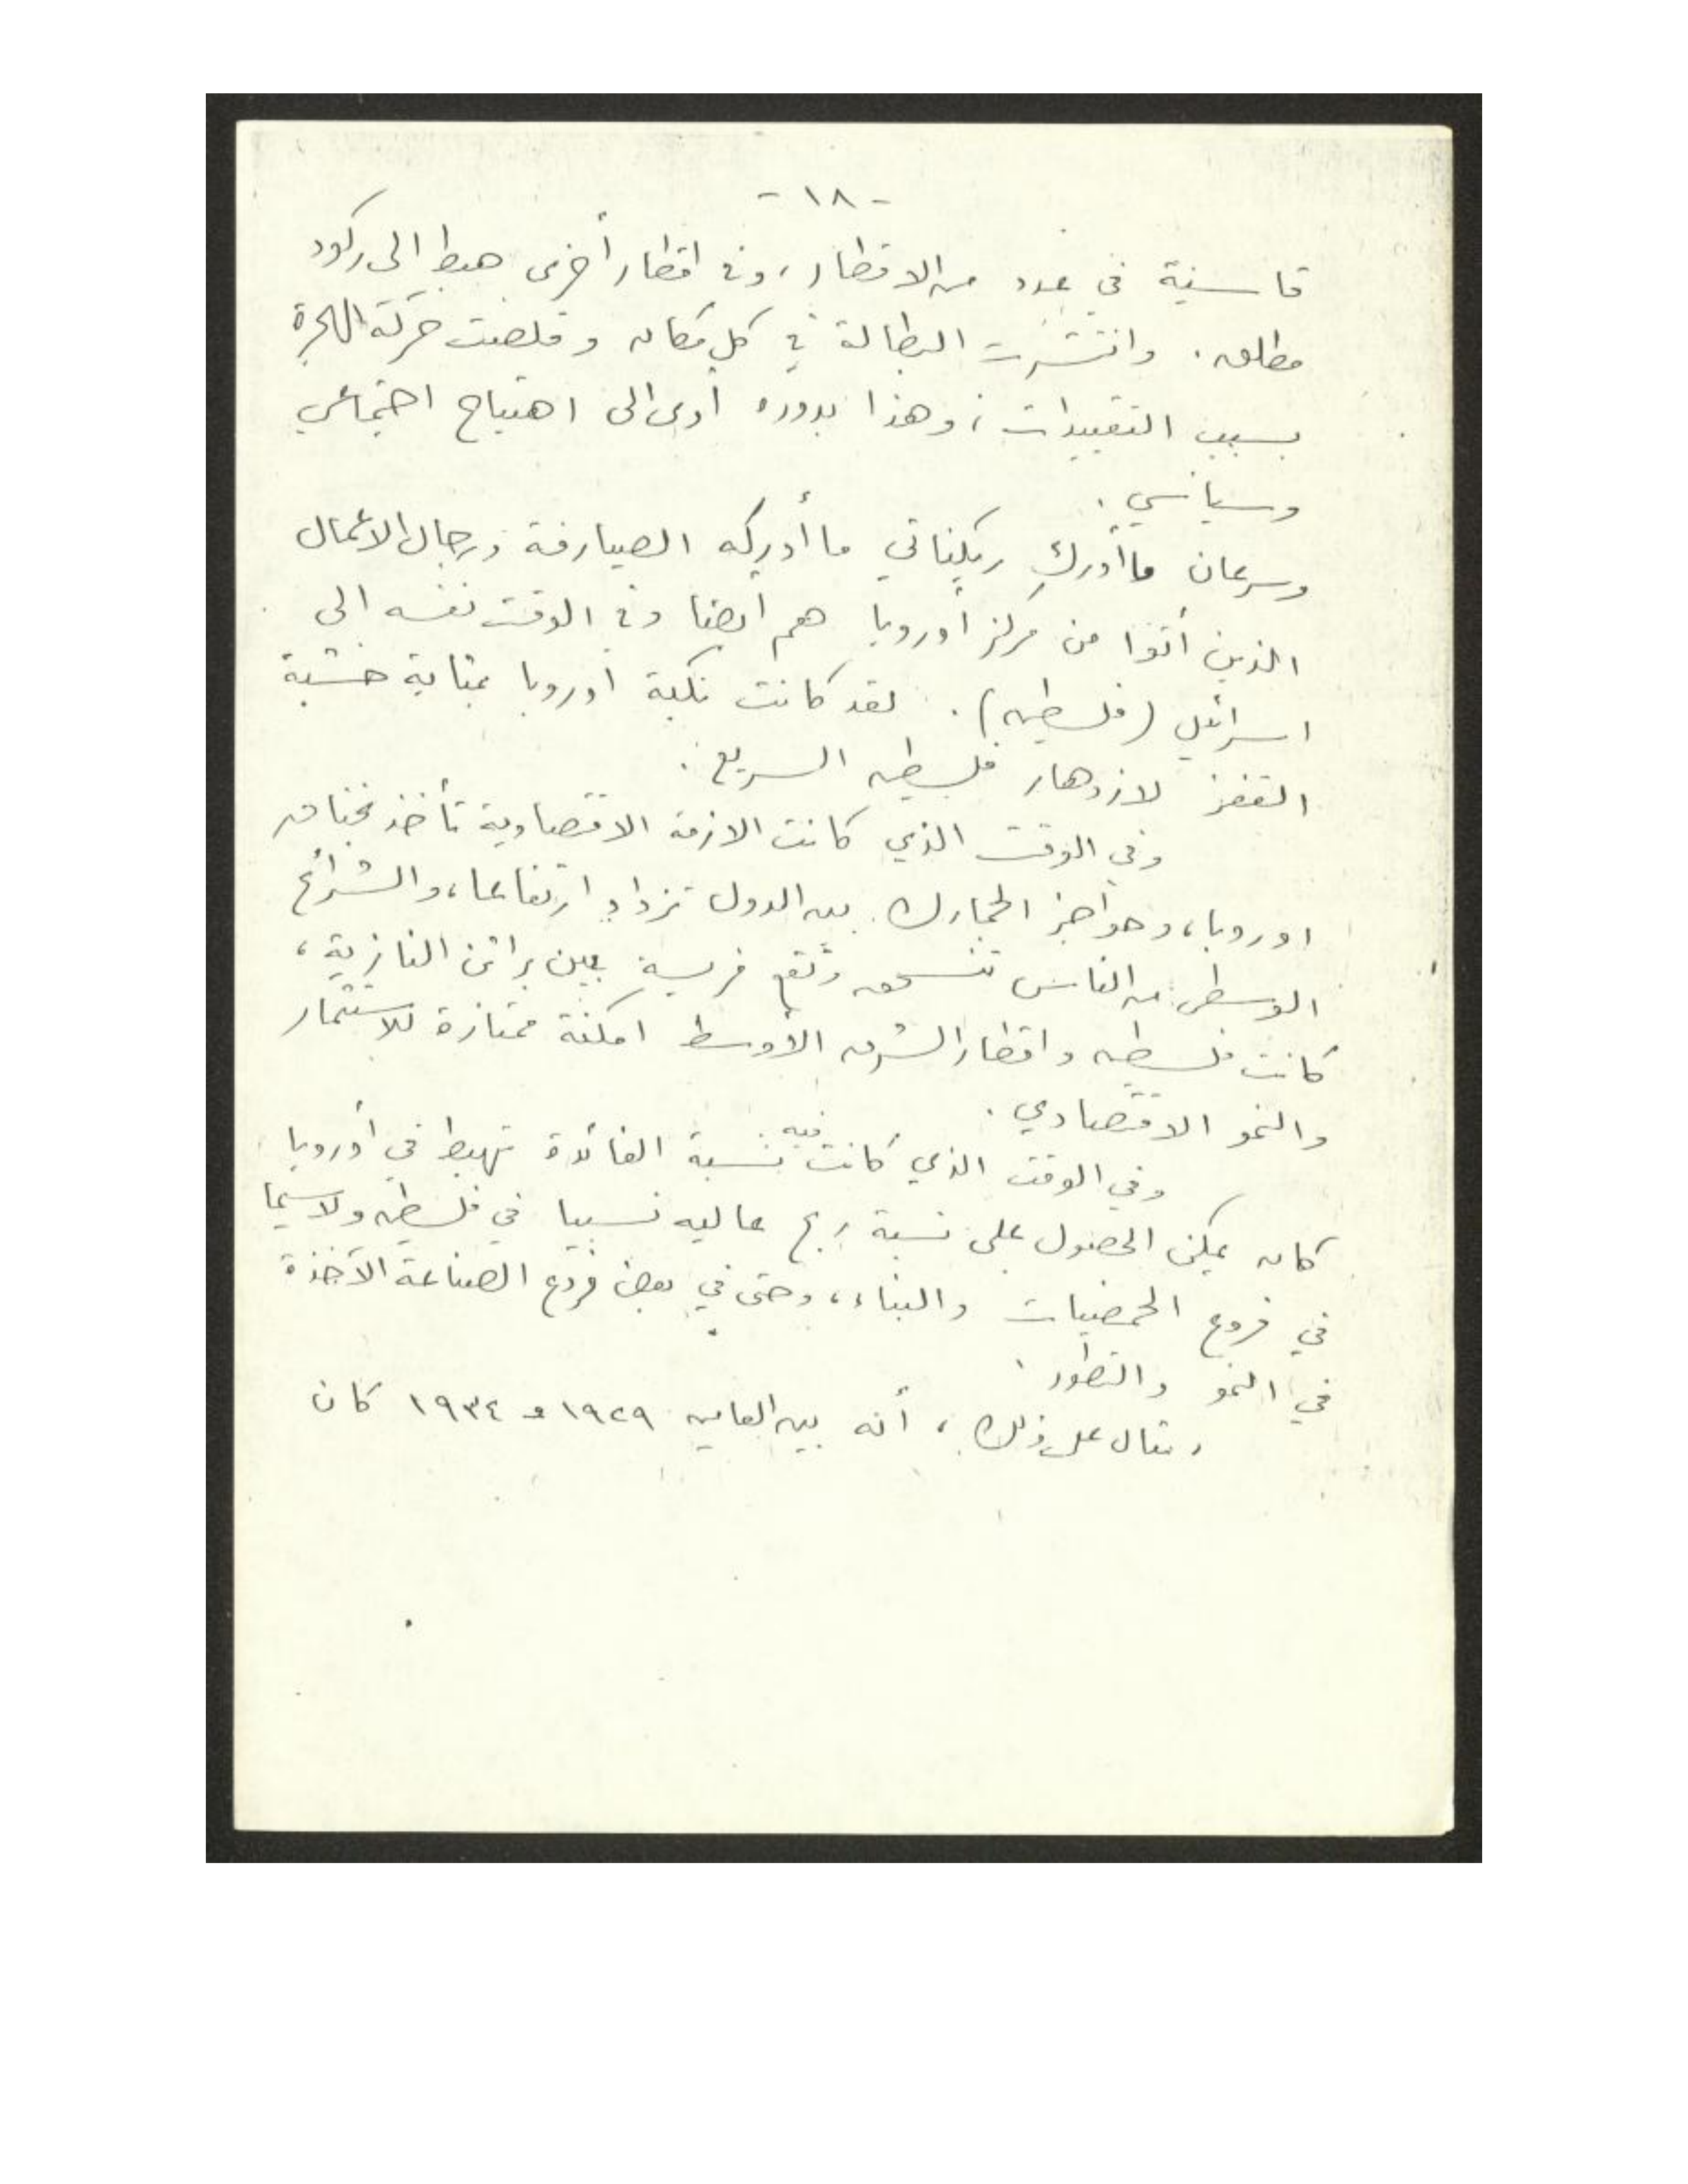 - ١٨ -
قاسية في عدد من الاقطار، وفي اقطار أخرى هبط الى ركود
مطلق. وانتشرت البطالة في كل مكان وقلصت حركة الهجرة
بسبب التقييدات؛ وهذا بدوره أدى الى اهتياج اجتماعي
وسياسي.
وسرعان ما أدرك ريكناتي ما أدركه الصيارفة ورجال الاعمال
الذين أتوا من مركز أوروبا هم أيضا وفي الوقت نفسه الى
اسرائيل (فلسطين). لقد كانت نكبة أوروبا بمثابة خشبة
القفز لازدهار فلسطين السريع.
وفي الوقت الذي كانت الازمة الاقتصادية تأخذ بخناق
اوروبا، وحواجز الجمارك بين الدول تزداد ارتفاعا، والشرائح
الوسطى من الناس تنسحق وتقع فريسة بين براثن النازية،
كانت فلسطين واقطار الشرق الأوسط امكنة ممتازة للاستثمار
والنمو الاقتصادي.
وفي الوقت الذي كانت فيه نسبة الفائدة تهبط في أوروبا
كان يمكن الحصول على نسبة ربح عاليه نسبيا في فلسطين ولاسيما
في فروع الحمضيات والبناء، وحتى في بعض فروع الصناعة الآخذة
في النمو والتطور.
مثال على ذلك، أنه بين العامين ١٩٢٩ و ١٩٣٤ كان